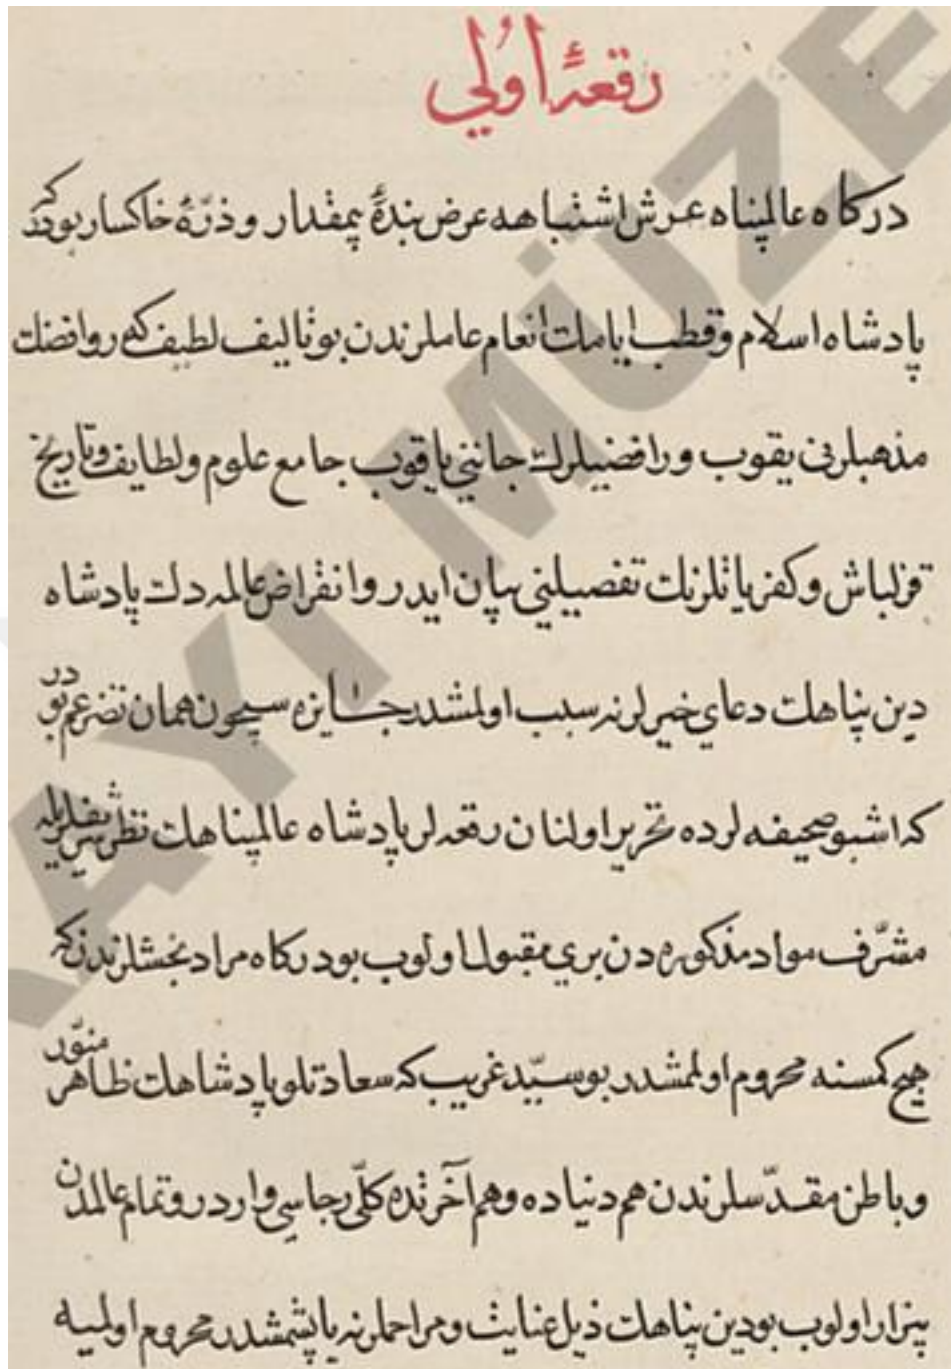 رقعهٔ اولي
دركاه عالمپناه عرش اشتباهه عرض بندهٔ بیمقدار و ذرّهٔ خاكسار بودركه
پادشاه اسلام و قطب ایامك انعام عاملرندن بو تالیف لطیف كه روافضك
مذهبلرنی یقوب و رافضیلرك جاننی یاقوب جامع علوم و لطایف و تاریخ
قزلباش و كفریاتلرنك تفصیلنی بیان ایدر و انقراض عالمه دك پادشاه
دین پناهك دعای خیرلرنه سبب اولمشدر جایزه سیچون همان تضرعم بودر
كه اشبو صحیفه لرده تحریر اولنان رقعه لر پادشاه عالمپناهك نظر شریفلریله
مشرّف مواد مذكوره دن بری مقبول اولوب بو دركاه مراد بخشلرندن كه
هیچ كمسنه محروم اولمشدر بو سیّد غریب كه سعادتلو پادشاهك ظاهر منوّر
و باطن مقدّسلرندن هم دنیاده و هم آخرتده كلّی رجاسی واردر و تمام عالمدن
بیزار اولوب بو دین پناهك ذیل عنایت و مراحملرنه یاپشمشدر محروم اولمیه
MÜZE